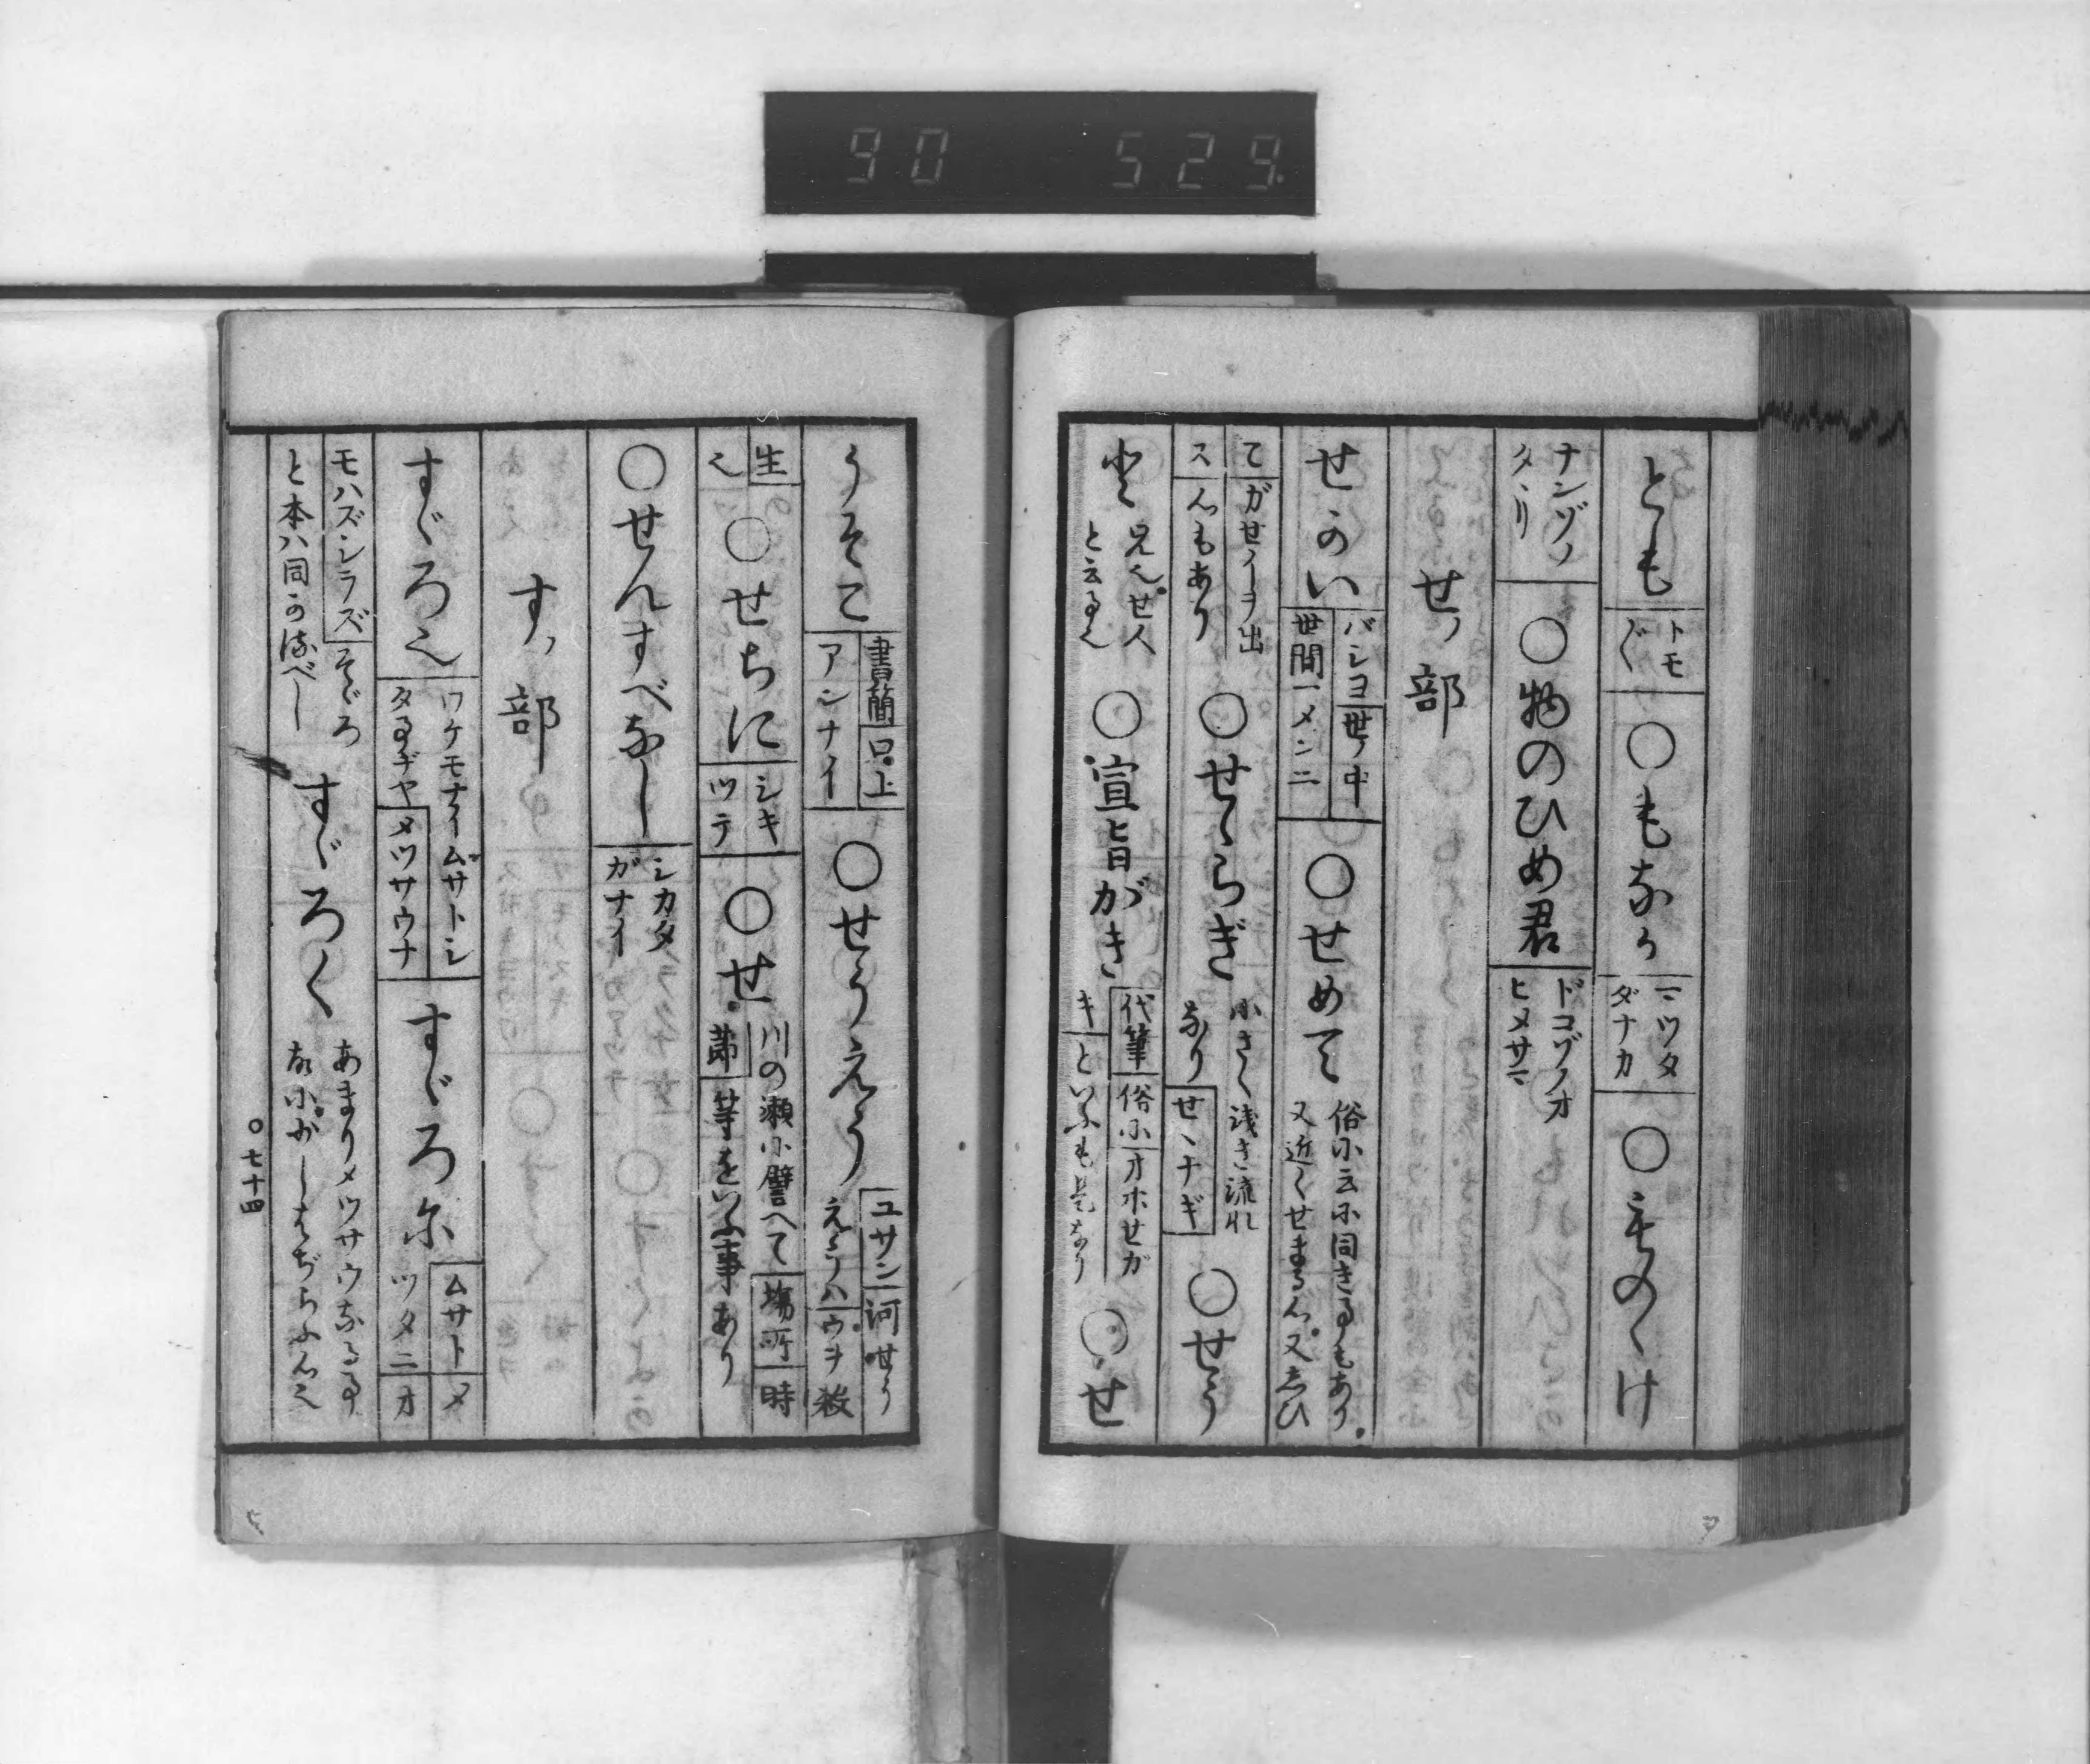 90 529
とも トモ〲 ○もなか マツタダナカ ○ものゝけ
ナンゾノタヽリ ○物のひめ君 ドコゾノオヒメサマ
せノ部
せかい バシヨ 世ノ中 世間一メンニ ○せめて 俗に云に同きるもあり。
又近くせまる心。又しひ
てガせイヲ出ス心もあり ○せゝらぎ 小さく浅き流れなり せゝナギ ○せう
と 兄也。せ人と云る也 ○宣旨がき 代筆 俗に オホせガキ といふも是なり ○せ
うそこ 書簡 口上 アンナイ ○せうえう ユサン 河せう
えうハ ウヲ殺
生也 ○せちに シキツテ ○せ 川の瀬に譬へて 場所 時
節 等をいふ事あり
○せんすべなし シカタガナイ
すノ部
すゞろ也 ワケモナイ ムサトシタる事ヂヤ メツサウナ すゞろに ムサト メツタニ オ
モハズシラズ そゞろと本ハ同かるべし すゞろく あまりメツサウなる事
故に
○七十四